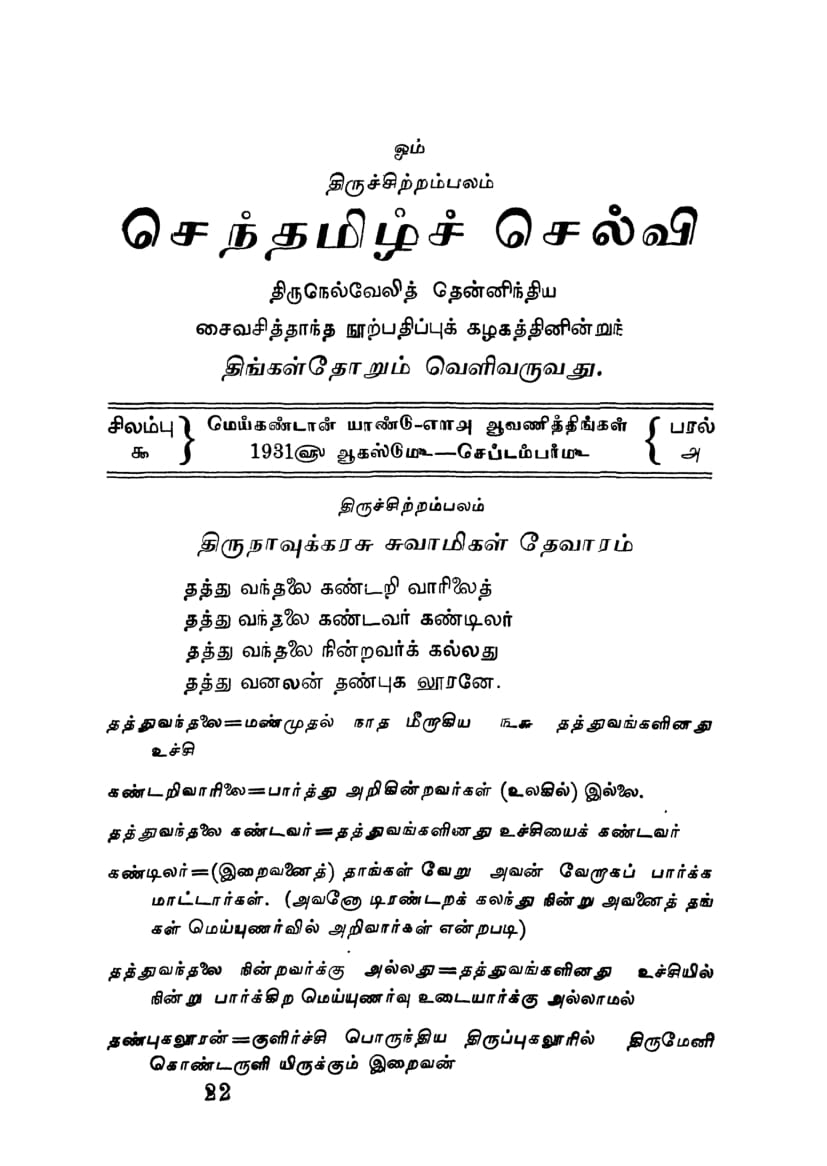 ஓம்
திருச்சிற்றம்பலம்
செந்தமிழ்ச் செல்வி
திருநெல்வேலித் தென்னிந்திய
சைவசித்தாந்த நூற்பதிப்புக் கழகத்தினின்றுந்
திங்கள்தோறும் வெளிவருவது.
சிலம்பு } மெய்கண்டான் யாண்டு-எ௱அ ஆவணித்திங்கள் { பரல்
௯ 1931௵ ஆகஸ்டு௴—செப்டம்பர்௴ அ
திருச்சிற்றம்பலம்
திருநாவுக்கரசு சுவாமிகள் தேவாரம்
தத்து வந்தலை கண்டறி வாரிலைத்
தத்து வந்தலை கண்டவர் கண்டிலர்
தத்து வந்தலை நின்றவர்க் கல்லது
தத்து வனலன் தண்புக லூரனே.
தத்துவந்தலை=மண்முதல் நாத மீறாகிய ௩௬ தத்துவங்களினது
உச்சி
கண்டறிவாரிலை=பார்த்து அறிகின்றவர்கள் (உலகில்) இல்லை.
தத்துவந்தலை கண்டவர்=தத்துவங்களினது உச்சியைக் கண்டவர்
கண்டிலர்=(இறைவனைத்) தாங்கள் வேறு அவன் வேறாகப் பார்க்க
மாட்டார்கள். (அவனோ டிரண்டறக் கலந்து நின்று அவனைத் தங்
கள் மெய்யுணர்வில் அறிவார்கள் என்றபடி)
தத்துவந்தலை நின்றவர்க்கு அல்லது=தத்துவங்களினது உச்சியில்
நின்று பார்க்கிற மெய்யுணர்வு உடையார்க்கு அல்லாமல்
தண்புகலூரன்=குளிர்ச்சி பொருந்திய திருப்புகலூரில் திருமேனி
கொண்டருளி யிருக்கும் இறைவன்
22